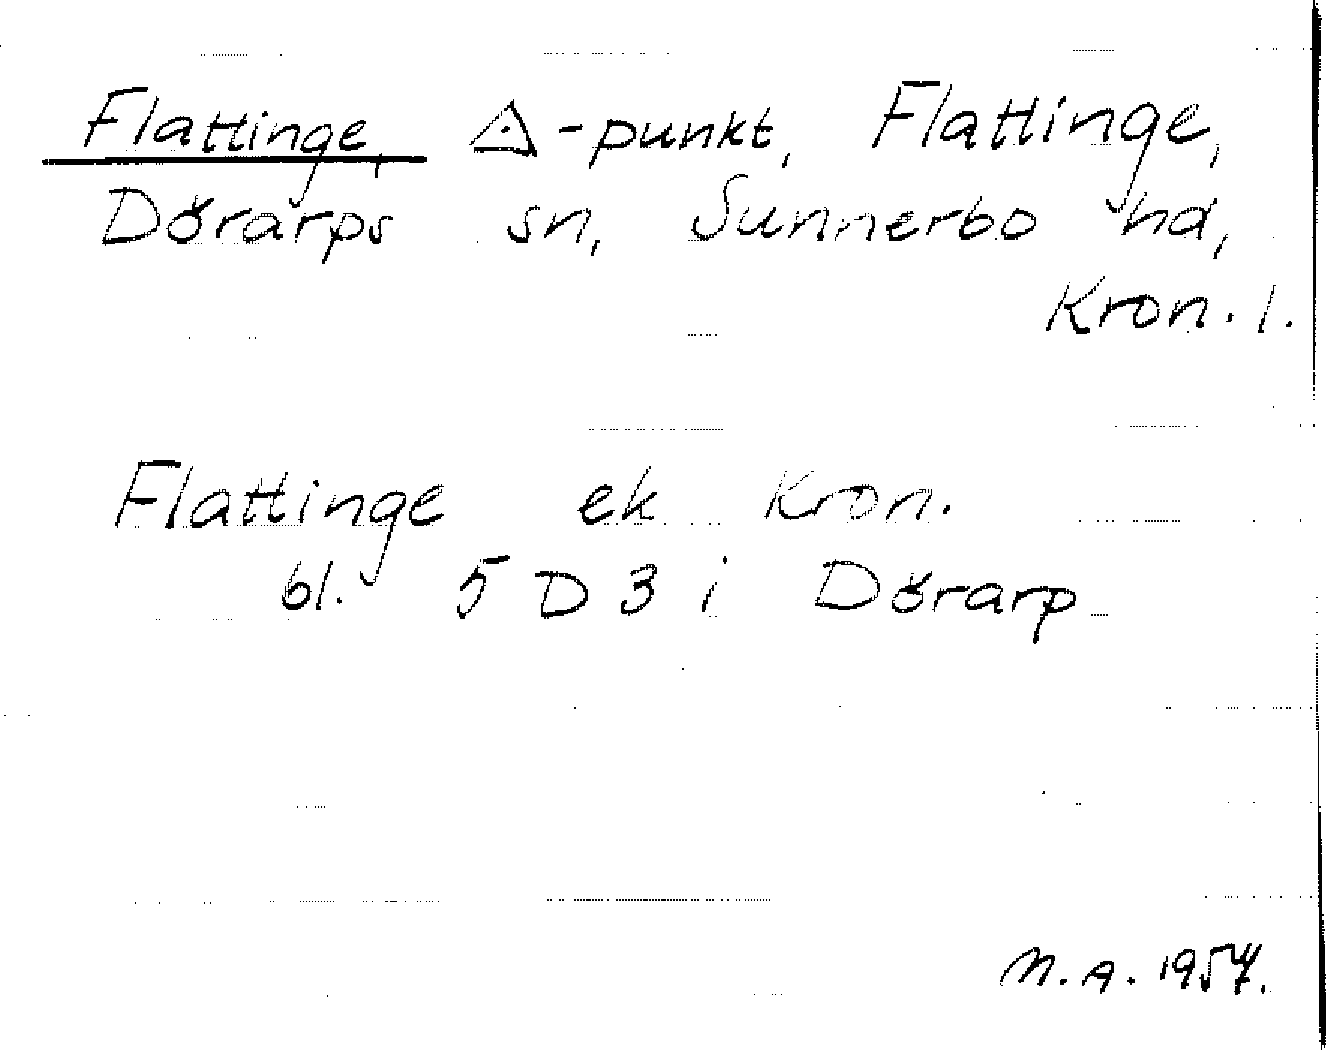 Flattinge, △-punkt, Flattinge,
Dörarps sn, Sunnerbo hd,
Kron. l.
Flattinge ek Kron.
bl. 5 D 3 i Dörarp
N. A. 1954.